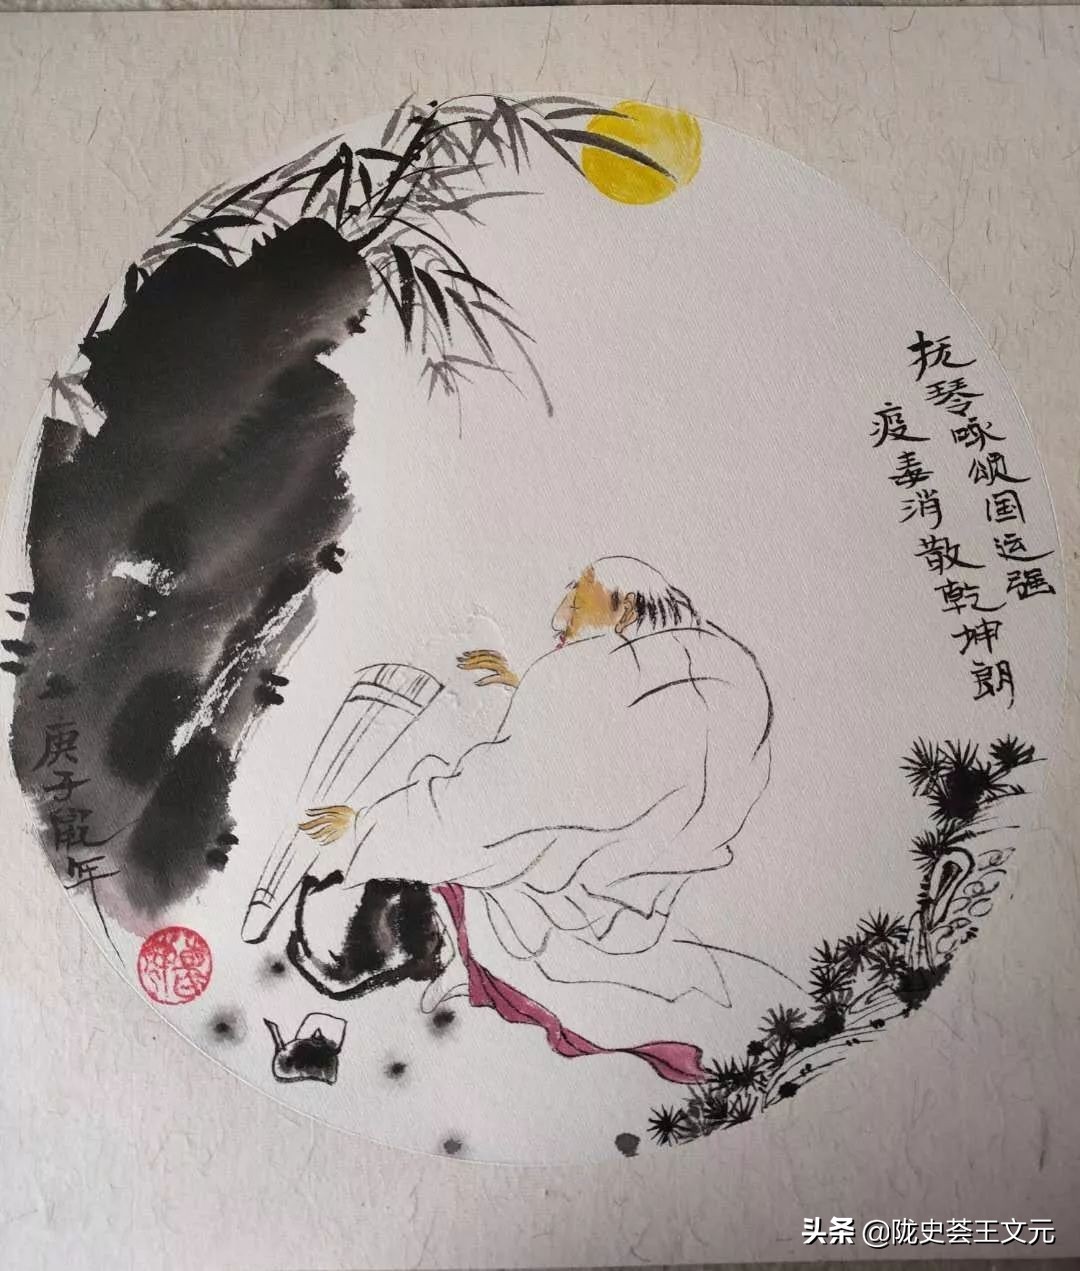 抚琴咏颂国运强
疫毒消散乾坤朗
庚子鼠年
头条 @陇史荟王文元